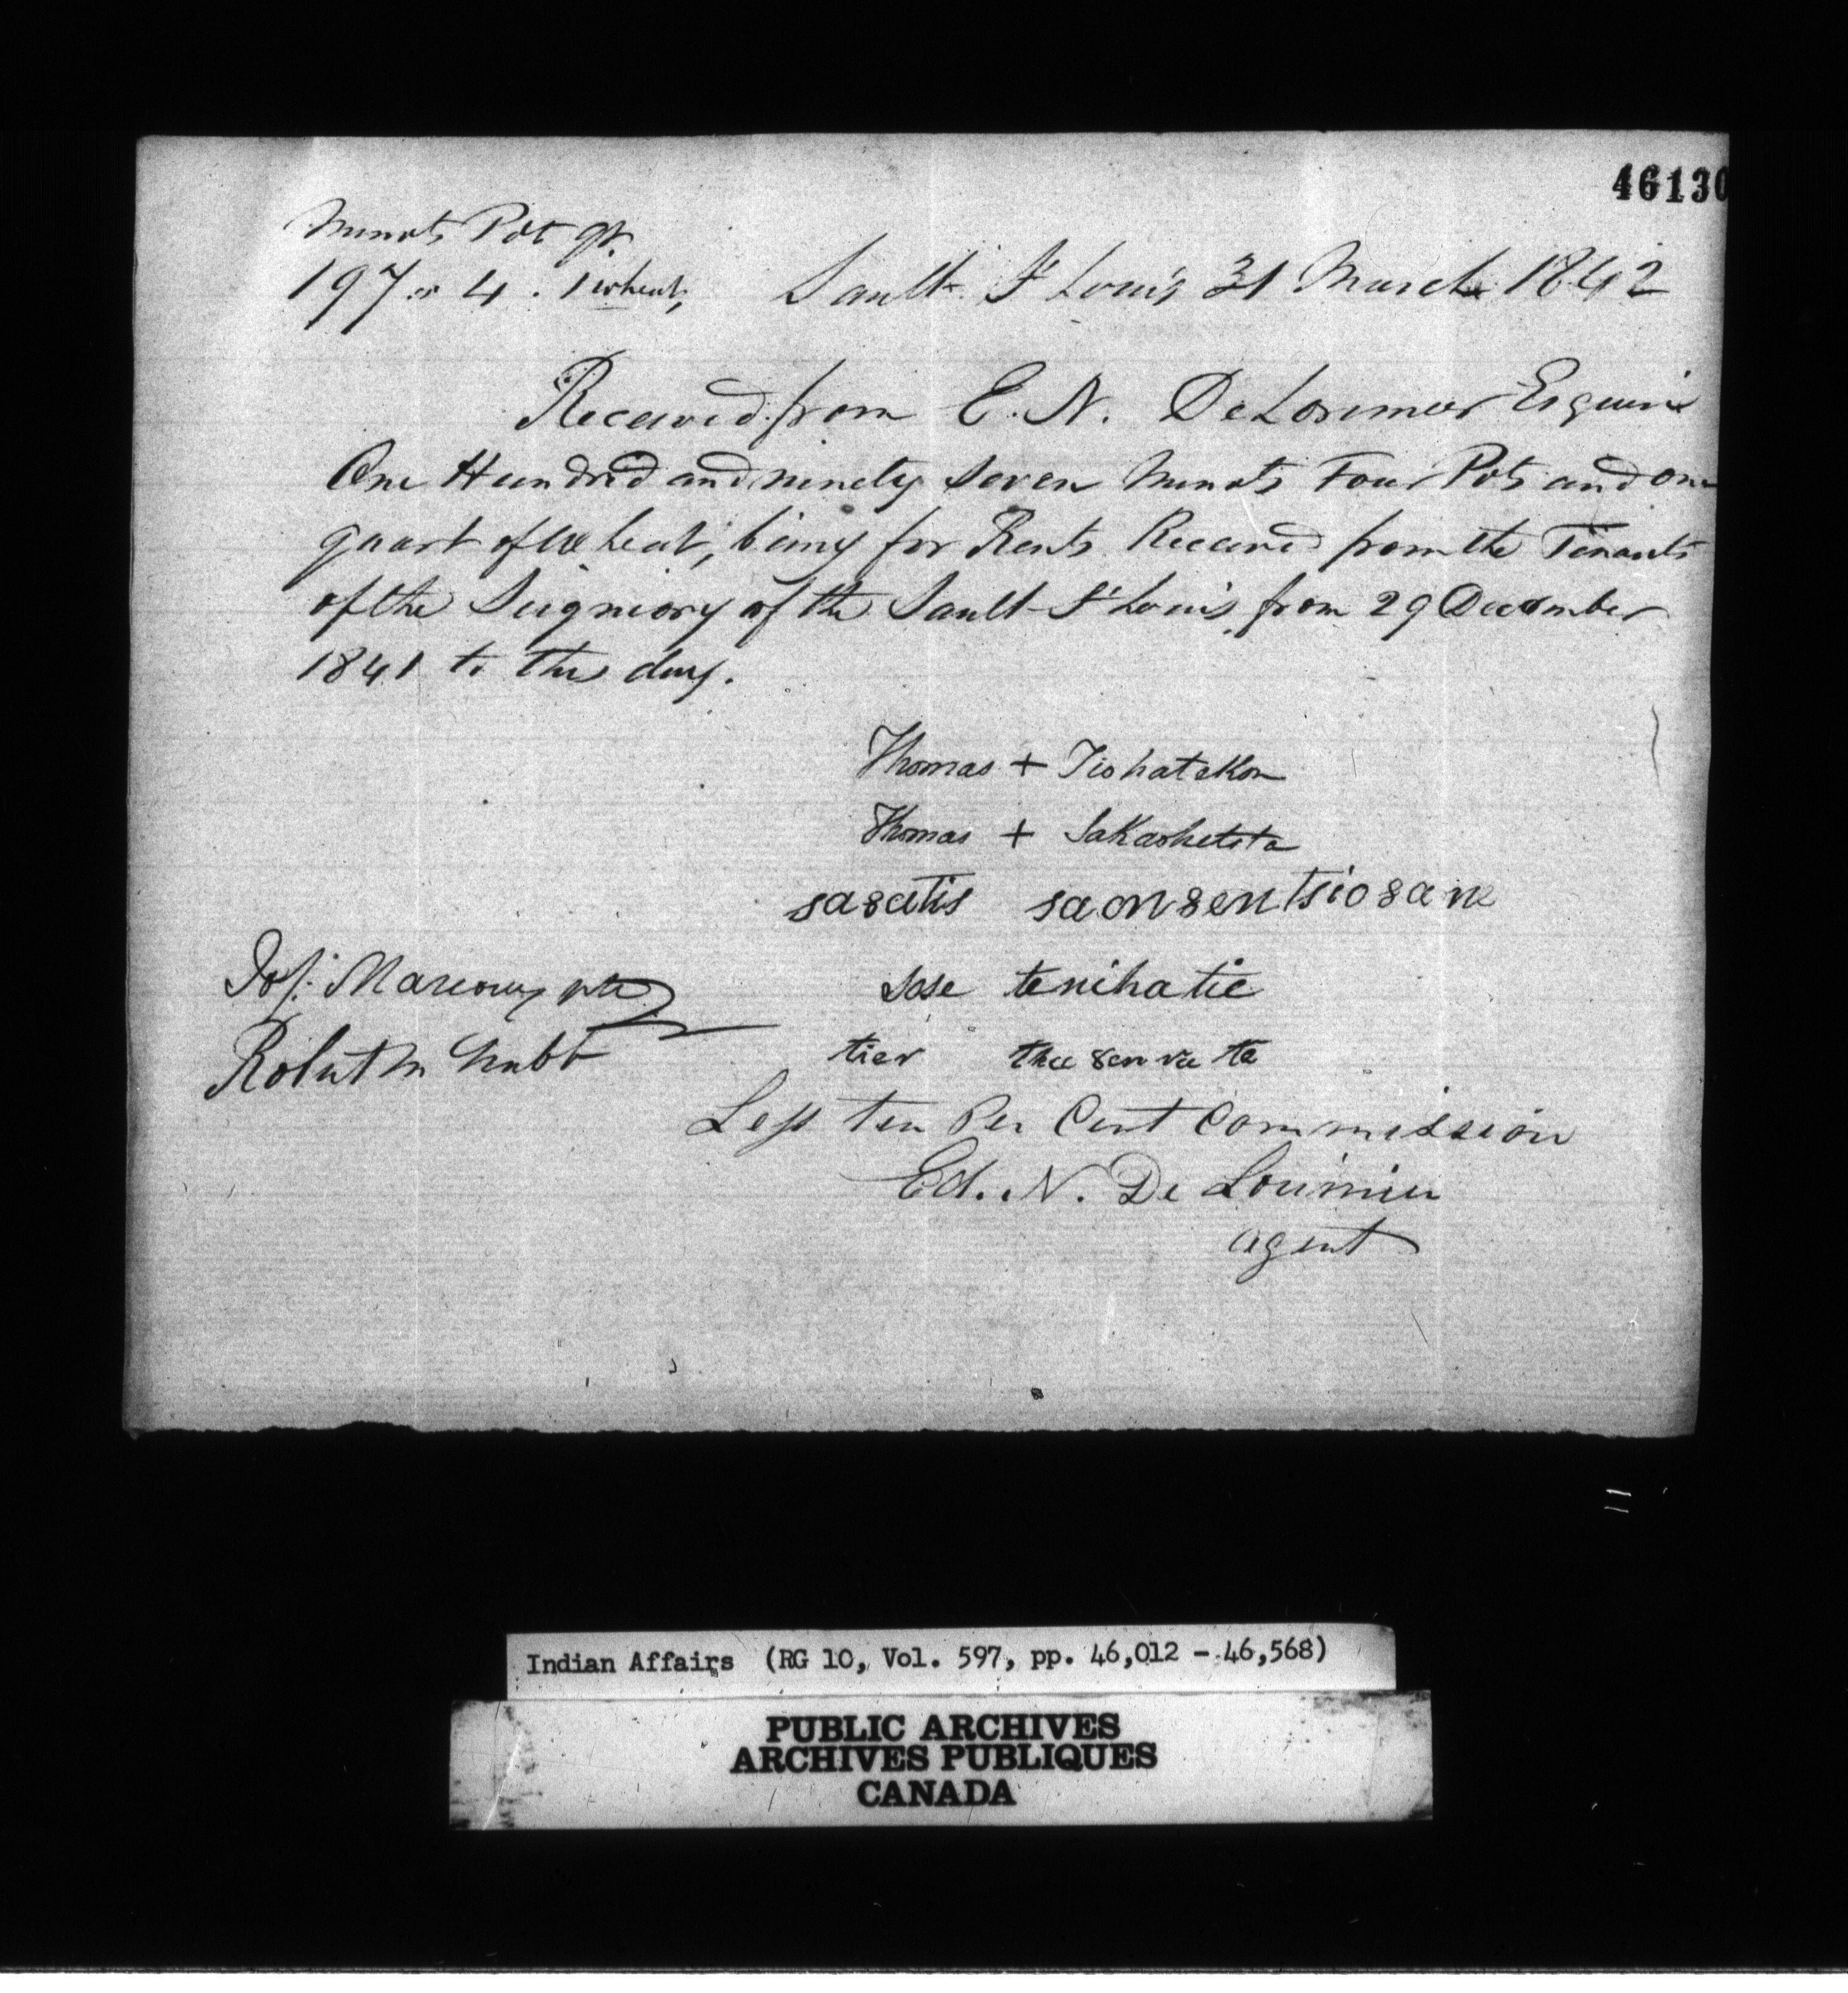 46130
Minots Pot qt.
197 " 4 . 1 wheat,
Sault St Louis 31 March 1842
Received from E. N. DeLorimier Esquire
One Hundred and ninety seven Minots Four Pots and one
quart of Wheat, being for Rents Received from the Tenants
of the Seigniory of the Sault St Louis from 29 December
1841 to this day.
Thomas + Tiohatekon
Thomas + SaKaohetsta
sa8atis saon8entsio8ane
Jos. Marcoux ptr
sose tenihatie
Robert Mc Nabb
tier
Less ten Per Cent Commission
Ed. N. De Lorimier
agent
Indian Affairs (RG 10, Vol. 597, pp. 46,012 - 46,568)
PUBLIC ARCHIVES
ARCHIVES PUBLIQUES
CANADA